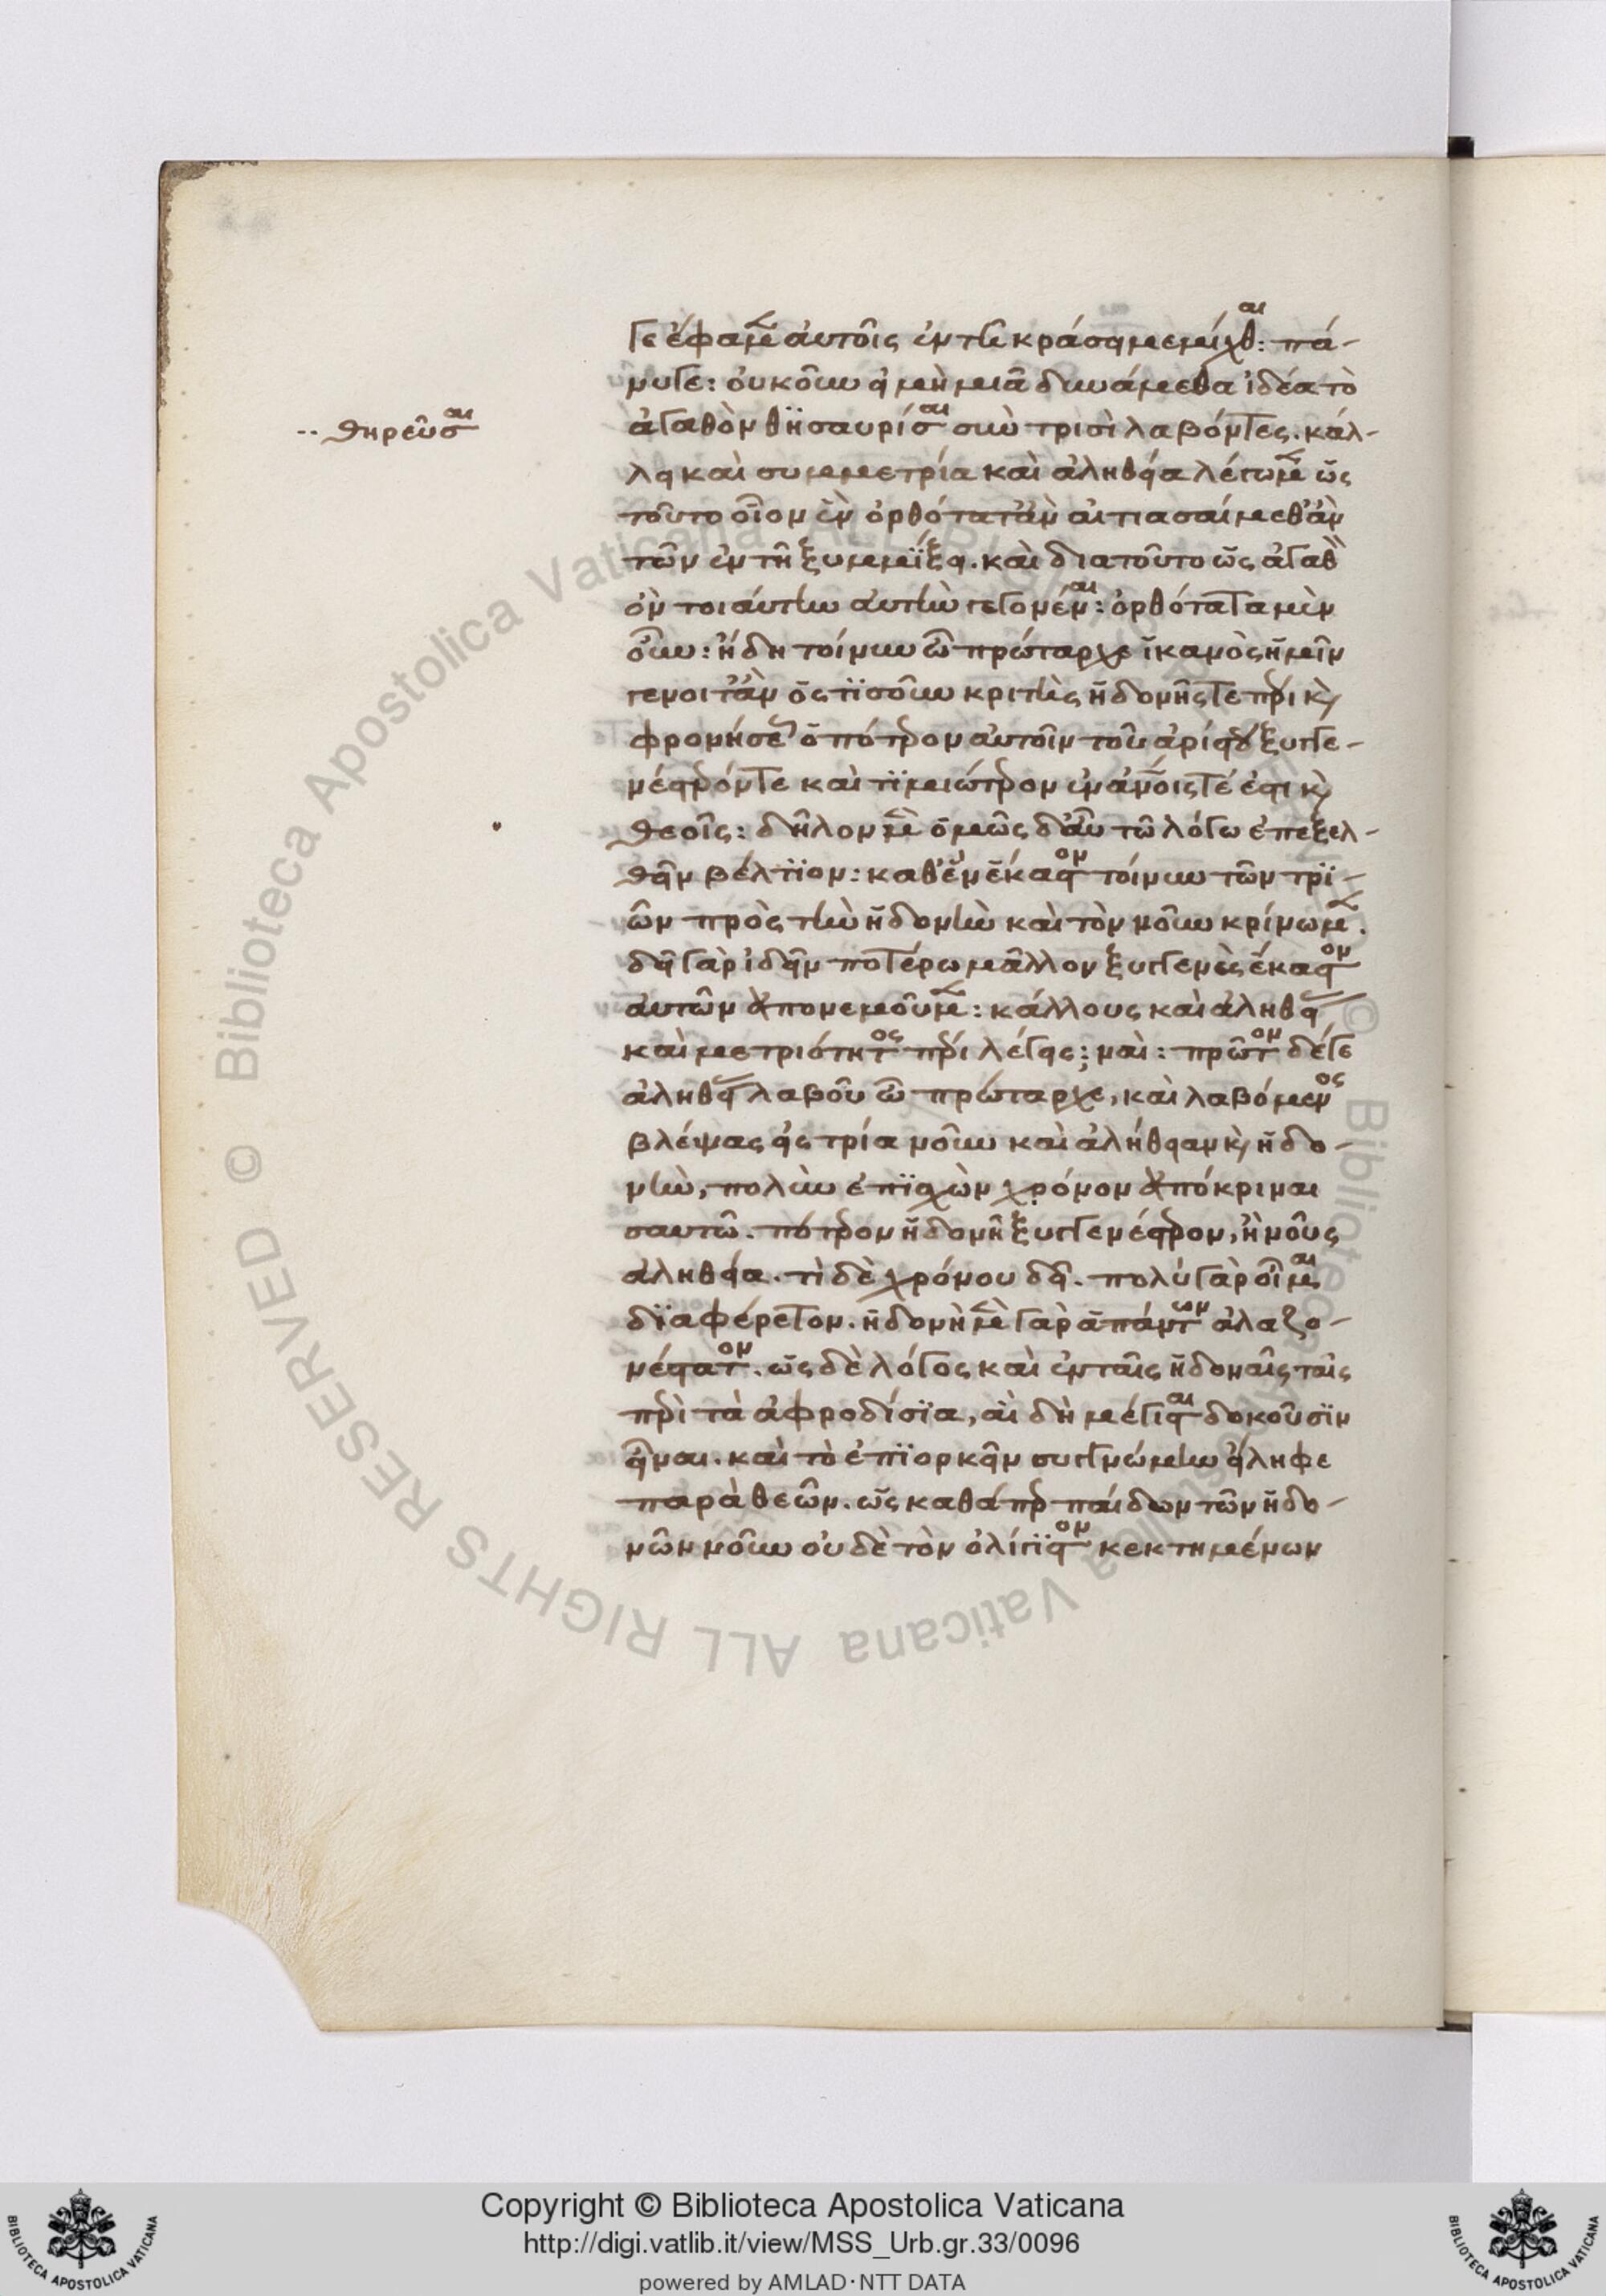 γε ἔφαμεν αὐτοῖς ἐν τῆ κράσει μεμίχθαι: πά-
νυγε: οὐκοῦν εἰ μὴ μιᾶ δυνάμεθα ἰδέα τὸ
ἀγαθὸν θησαυρίσαι σὺν τρισὶ λαβόντες. κάλ-
·· θηρεῦσαι
λει καὶ συμμετρία καὶ ἀληθεία λέγωμεν ὡς
τοῦτο οἷον ἓν ὀρθότατ' ἂν αἰτιασαίμεθ' ἂν
τῶν ἐν τῆ ξυμμίξει. καὶ διατοῦτο ὡς ἀγαθ
ὸν τοιαύτην αὐτὴν γεγονέναι: ὀρθότατα μὲν
οὖν: ἤδη τοίνυν ὦ πρώταρχε ἱκανὸς ἡμῖν
γένοιτ' ἂν ὅς τις οὖν κριτὴς ἡδονῆς τε πέρι καὶ
φρονήσεως ὁπότερον αὐτοῖν τοῦ ἀρίστου ξυγγε-
νέστερόν τε καὶ τιμιώτερον ἐν ἀνοις τέ ἐστι καὶ
θεοῖς: δῆλον μὲν ὅμως δ' οὖν τῶ λόγω ἐπεξελ-
θεῖν βέλτιον: καθ' ἓν ἕκαστον τοίνυν τῶν τρι-
ῶν πρὸς τὴν ἡδονὴν καὶ τὸν νοῦν κρίνωμεν.
δεῖ γὰρ ἰδεῖν ποτέρω μᾶλλον ξυγγενὲς ἕκαστον
αὐτῶν ἀπονεμοῦμεν: κάλλους καὶ ἀληθείας
καὶ μετριότητος πέρι λέγεις; ναὶ: πρῶτον δέ γε
ἀληθείας λαβοῦ ὦ πρώταρχε, καὶ λαβόμενος
βλέψας εἰς τρία νοῦν καὶ ἀλήθειαν καὶ ἡδο-
νὴν, πολὺν ἐπισχὼν χρόνον ἀπόκριναι
σαυτῶ. πότερον ἡδονὴ ξυγγενέστερον, ἢ νοῦς
ἀληθεία. τὶ δὲ χρόνου δεῖ. πολὺ γὰρ οἶμαι
διαφέρετον. ἡδονὴ μὲν γὰρ ἁπάντων ἀλαζο-
νέστατον. ὡς δὲ λόγος καὶ ἐν ταῖς ἡδοναῖς ταῖς
περὶ τὰ ἀφροδίσια, αἳ δὴ μέγισται δοκοῦσιν
εἶναι. καὶ τὸ ἐπιορκεῖν συγγνώμην εἴληφε
παρὰ θεῶν. ὡς καθάπερ παίδων τῶν ἡδο-
νῶν νοῦν οὐδὲ τὸν ὀλίγιστον κεκτημένων
© Biblioteca Apostolica Vaticana ALL RIGHTS RESERVED
Copyright © Biblioteca Apostolica Vaticana
http://digi.vatlib.it/view/MSS_Urb.gr.33/0096
powered by AMLAD·NTT DATA
BIBLIOTECA APOSTOLICA VATICANA
BIBLIOTECA APOSTOLICA VATICANA